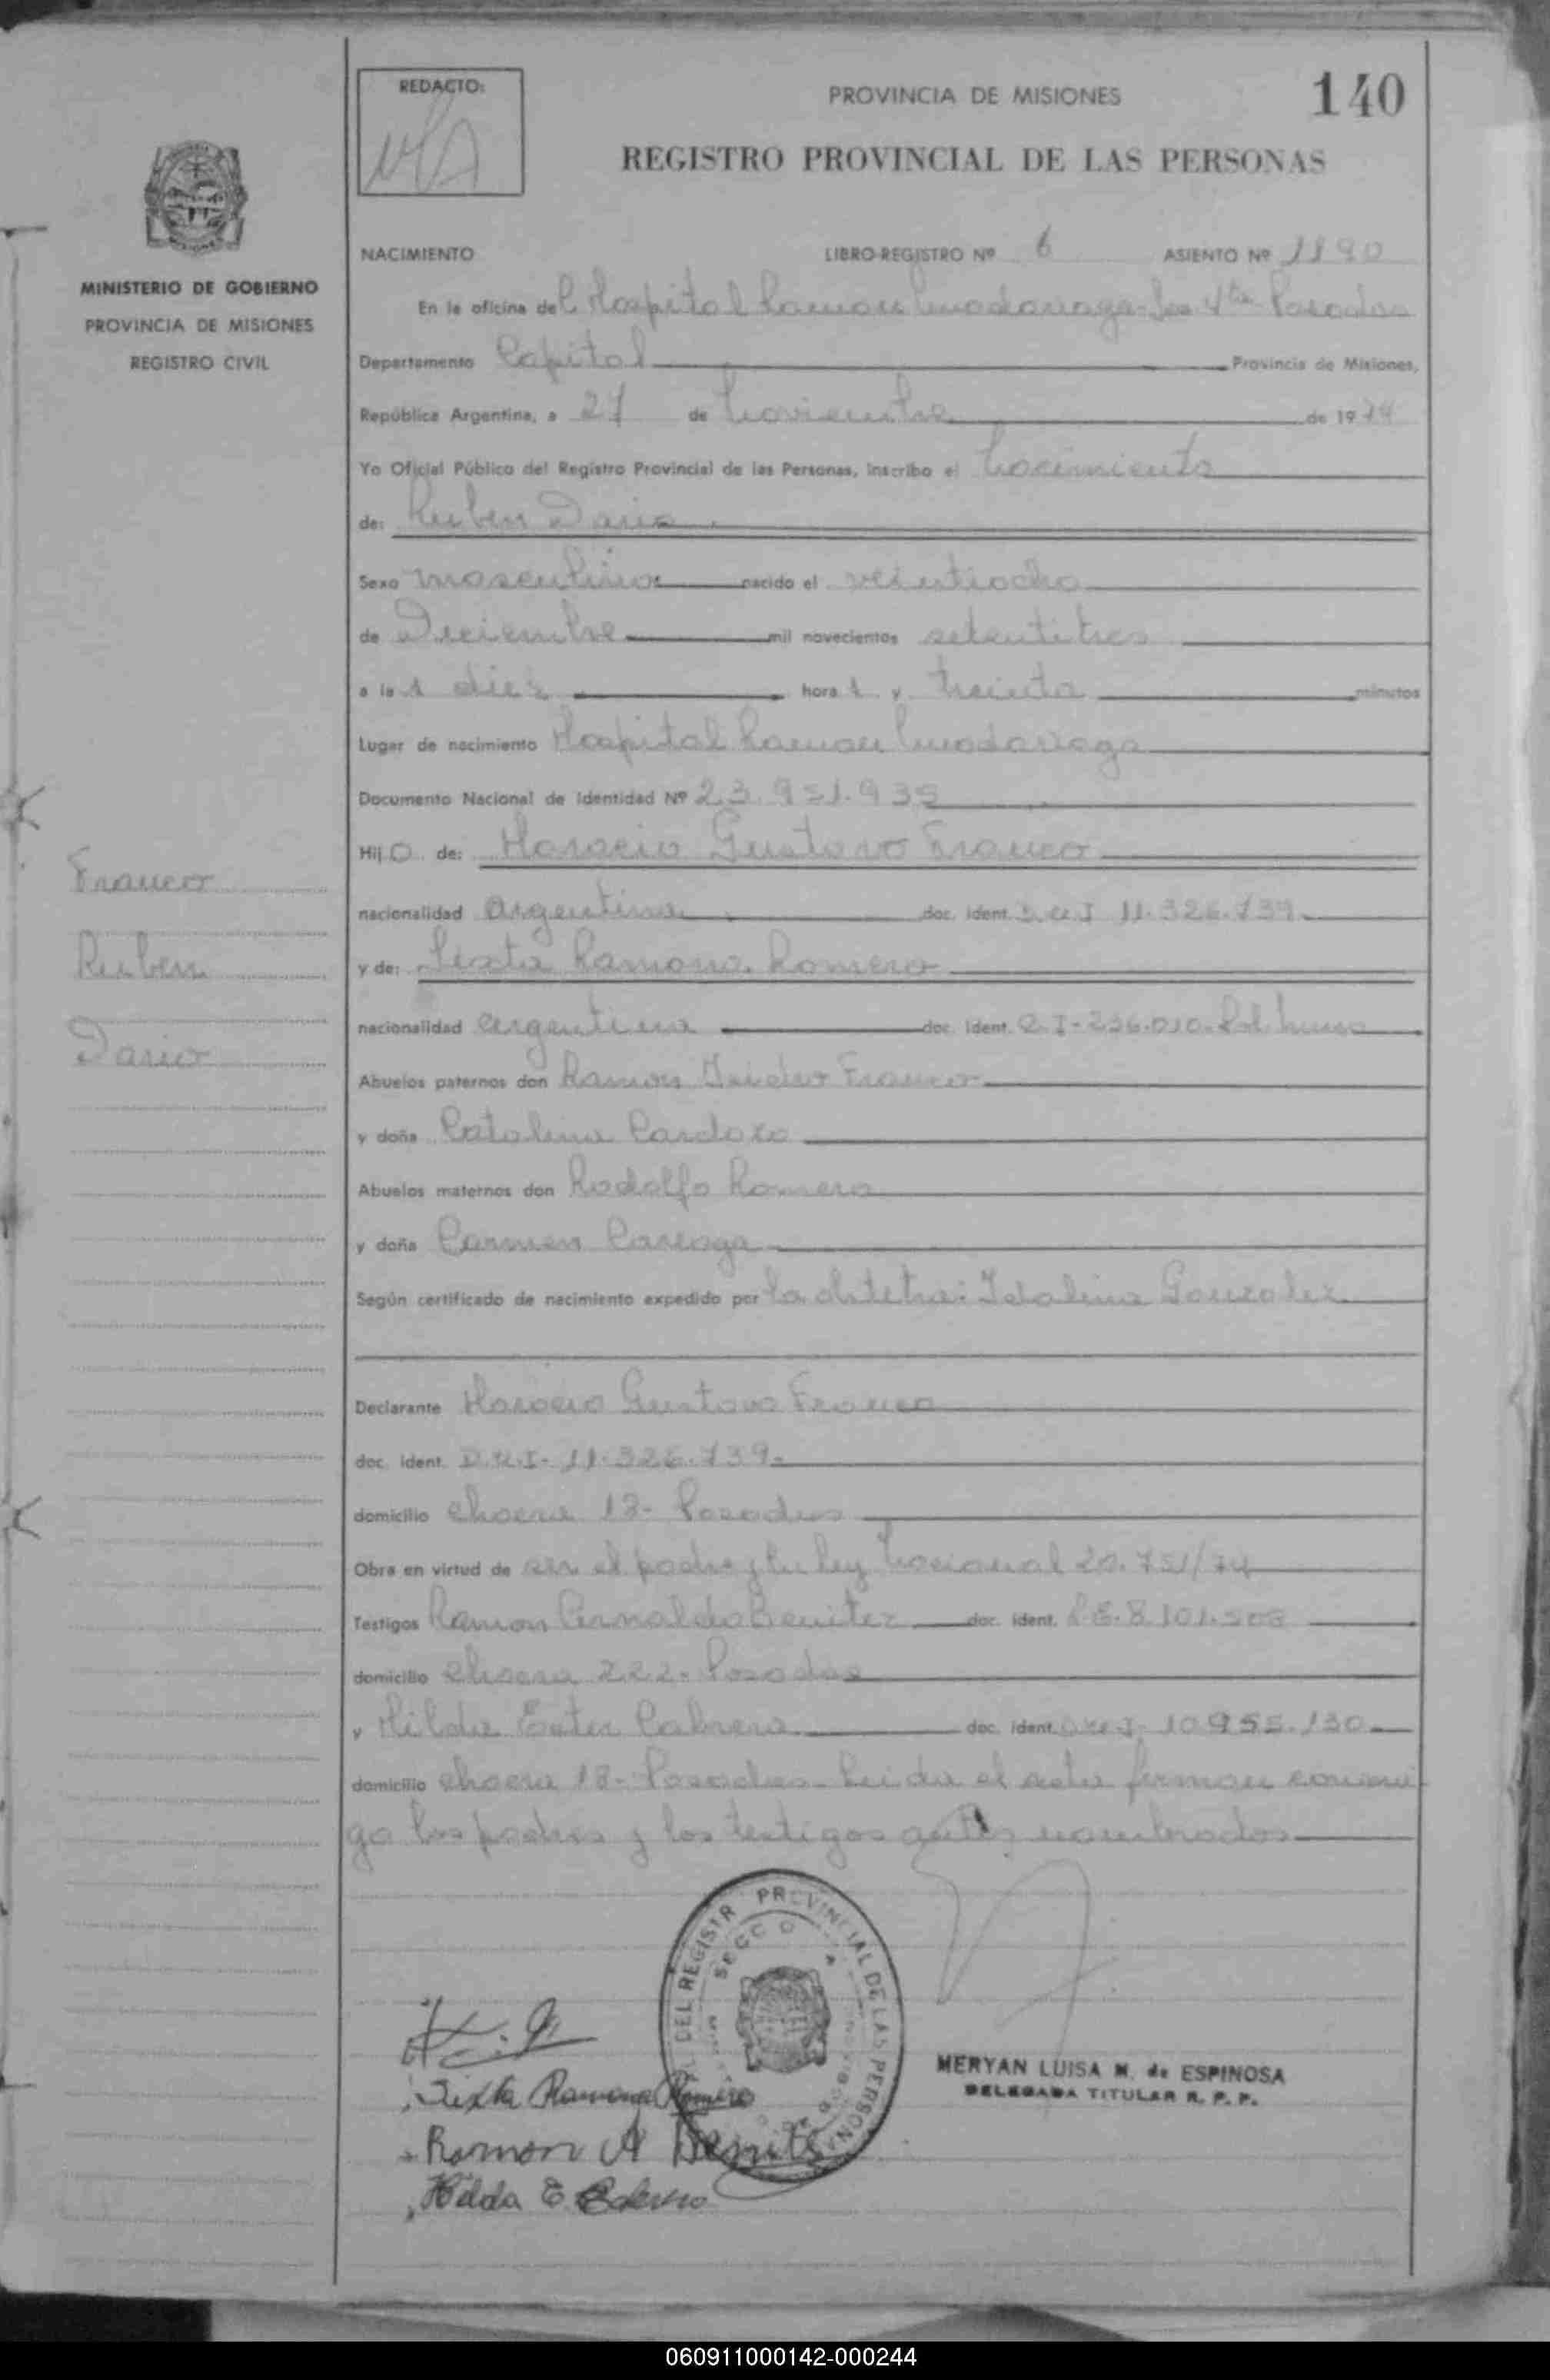 REDACTO:
PROVINCIA DE MISIONES
140
REGISTRO PROVINCIAL DE LAS PERSONAS
MINISTERIO DE GOBIERNO
PROVINCIA DE MISIONES
REGISTRO CIVIL
NACIMIENTO LIBRO-REGISTRO Nº 6 ASIENTO Nº 1190
En la oficina del Hospital Ramon Madariaga Posadas
Departamento Capital Provincia de Misiones,
República Argentina, a 27 de Noviembre de 1974
Yo Oficial Público del Registro Provincial de las Personas, inscribo el Nacimiento
de: Ruben Dario
Sexo masculino nacido el veintiocho
de Diciembre mil novecientos setentitres
a las diez horas y treinta minutos
Lugar de nacimiento Hospital Ramon Madariaga
Documento Nacional de Identidad Nº 23.951.935
Hijo de: Horacio Gustavo Franco
nacionalidad argentina doc. ident. D.N.I 11.326.739
y de: Sixta Ramona Romero
nacionalidad argentina doc. ident. C.I-236.010. Pol.
Abuelos paternos don Ramon Isidro Franco
y doña Catalina Cardozo
Abuelos maternos don Rodolfo Romero
y doña Carmen Careaga
Según certificado de nacimiento expedido por la obstetra: Idalina Gonzalez
Declarante Horacio Gustavo Franco
doc. ident. D.N.I- 11.326.739.
domicilio chacra 18- Posadas
Obra en virtud de ser el padre y la ley Nacional 20.751/74
Testigos Ramon Arnaldo Benitez doc. ident. L.E. 8.101.508
domicilio chacra 222- Posadas
y Hilda Ester Cabrera doc. ident. D.N.I- 10.955.130
domicilio chacra 18- Posadas- Leida el acta firman conmi
go los padres y los testigos antes nombrados
Franco
Ruben
Dario
DEL REGISTRO PROVINCIAL DE LAS PERSONAS
Sixta Ramona Romero
Ramon A Benites
Hilda E Cabrera
MERYAN LUISA M. de ESPINOSA
DELEGADA TITULAR R. P. P.
060911000142-000244